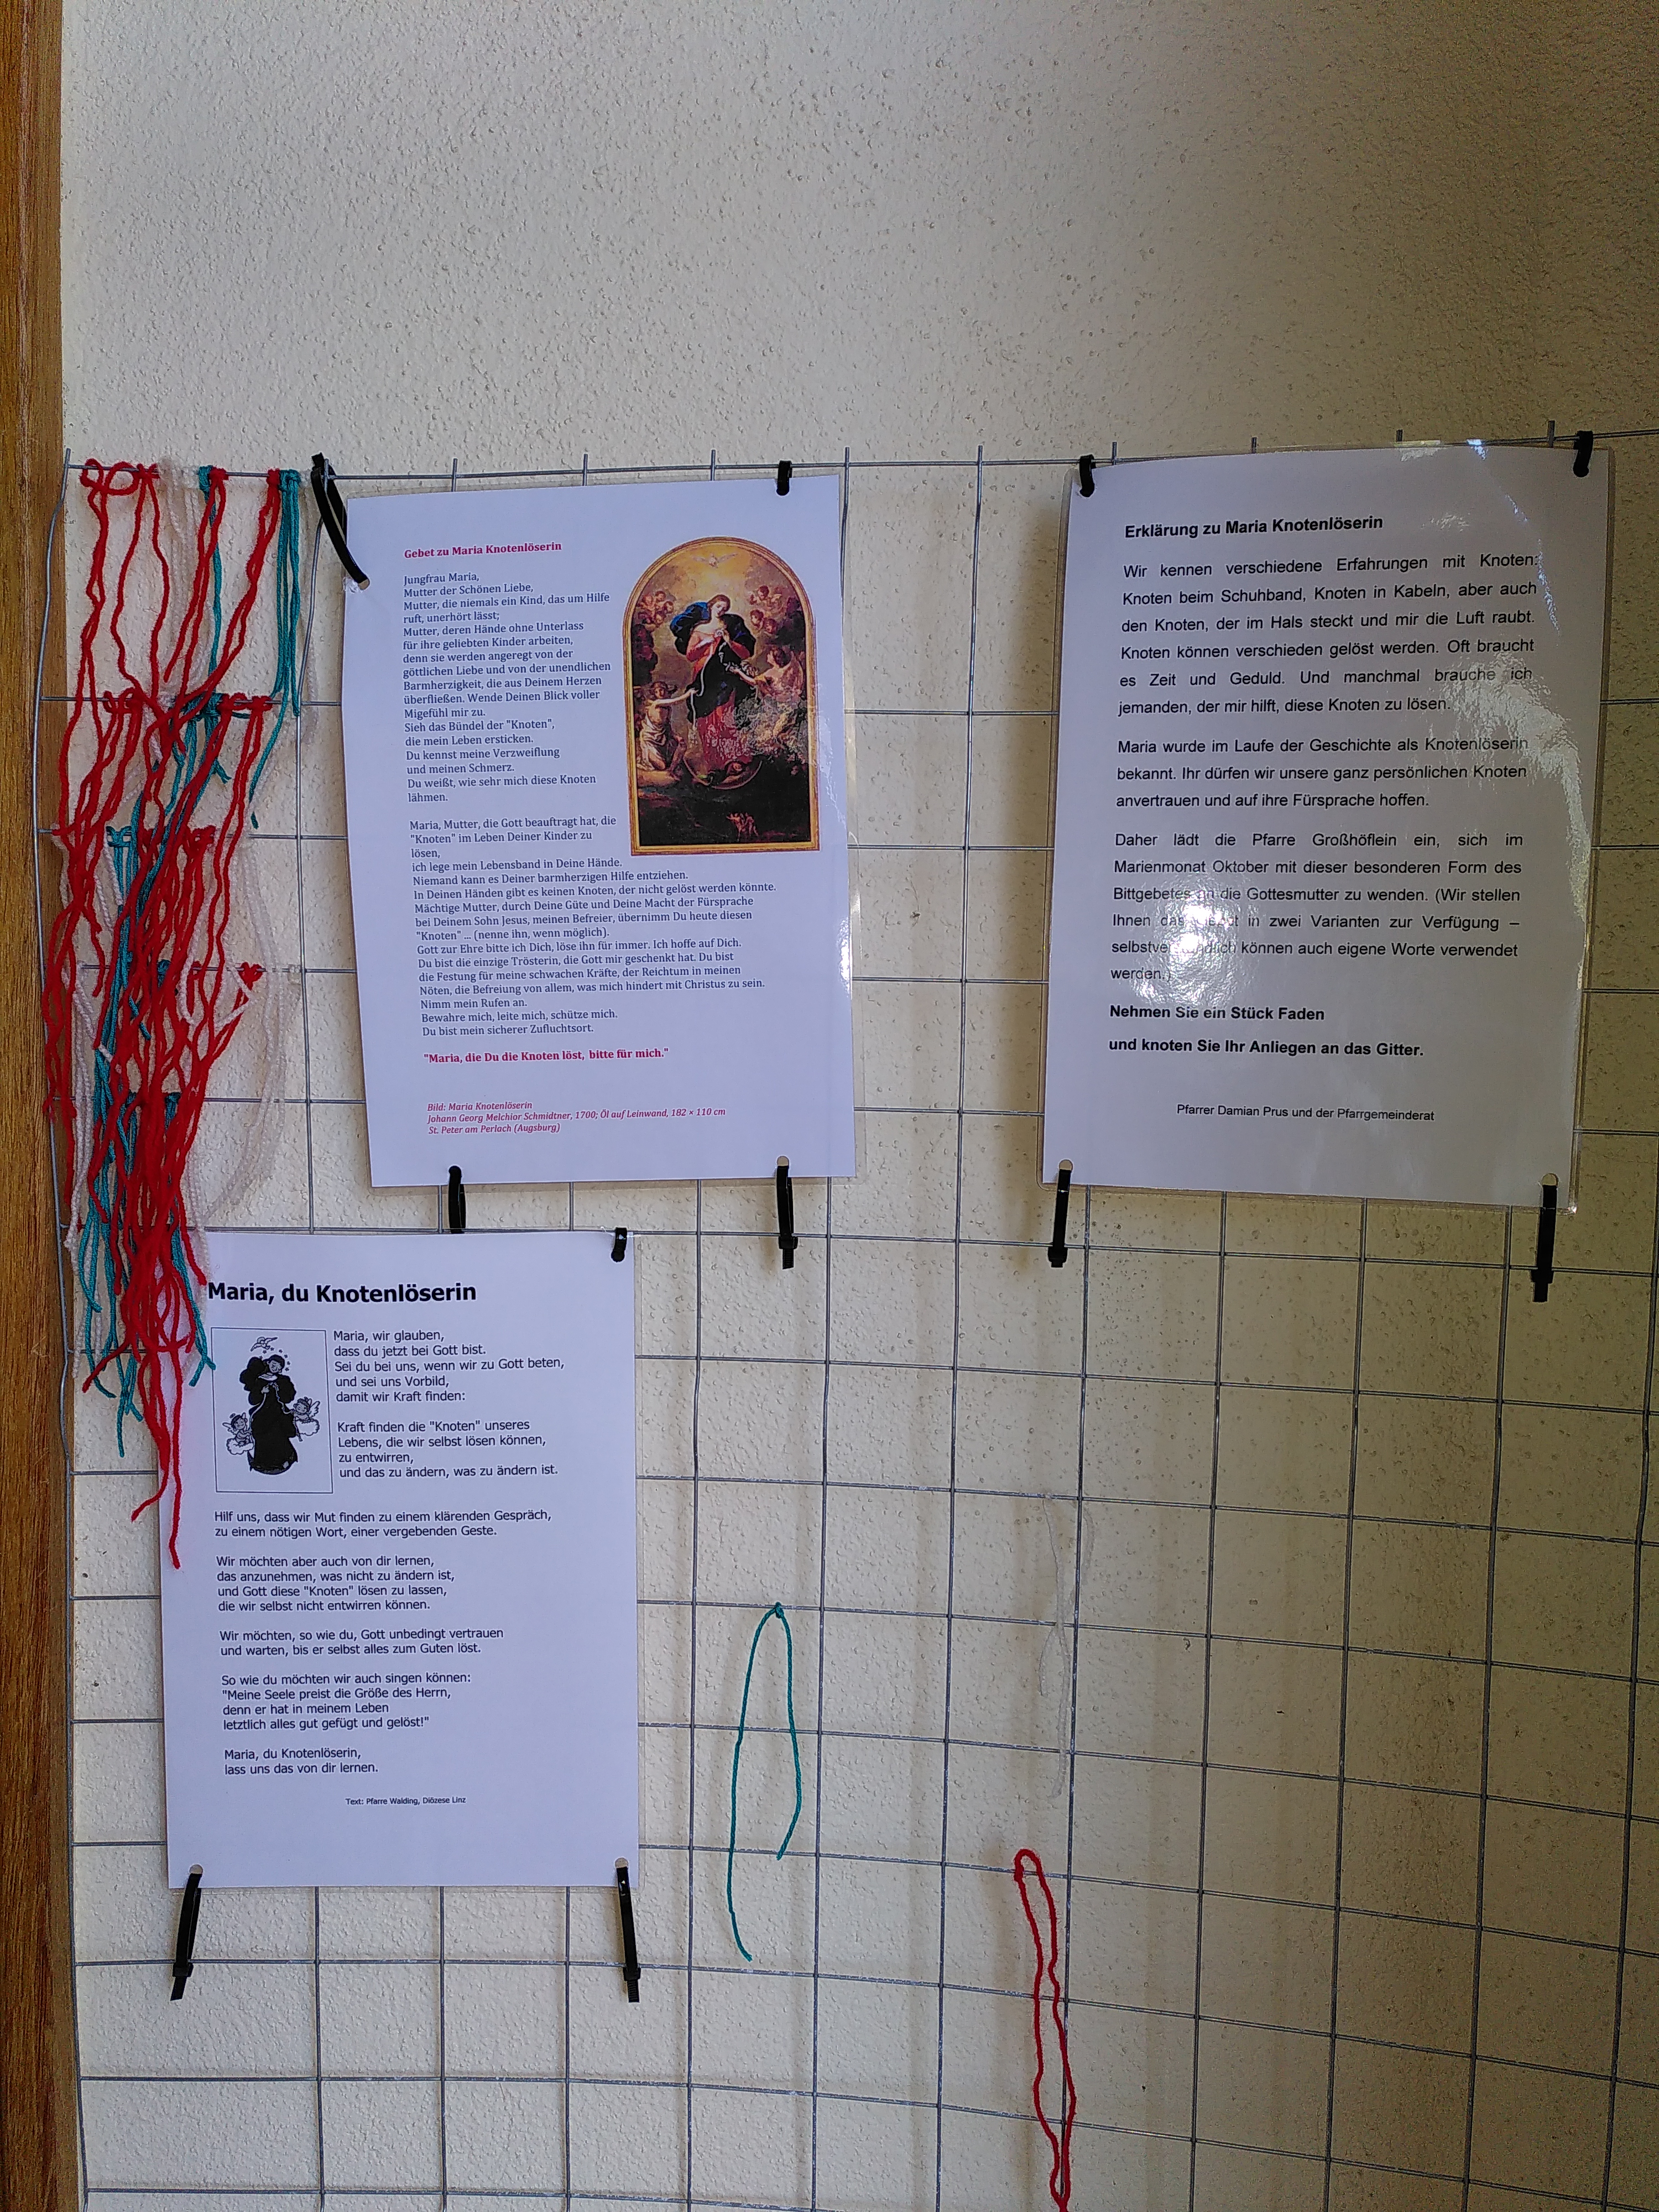 Gebet zu Maria Knotenlöserin
Jungfrau Maria,
Mutter der Schönen Liebe,
Mutter, die niemals ein Kind, das um Hilfe
ruft, unerhört lässt;
Mutter, deren Hände ohne Unterlass
für ihre geliebten Kinder arbeiten,
denn sie werden angeregt von der
göttlichen Liebe und von der unendlichen
Barmherzigkeit, die aus Deinem Herzen
überfließen. Wende Deinen Blick voller
Migefühl mir zu.
Sieh das Bündel der "Knoten",
die mein Leben ersticken.
Du kennst meine Verzweiflung
und meinen Schmerz.
Du weißt, wie sehr mich diese Knoten
lähmen.
Maria, Mutter, die Gott beauftragt hat, die
"Knoten" im Leben Deiner Kinder zu
lösen,
ich lege mein Lebensband in Deine Hände.
Niemand kann es Deiner barmherzigen Hilfe entziehen.
In Deinen Händen gibt es keinen Knoten, der nicht gelöst werden könnte.
Mächtige Mutter, durch Deine Güte und Deine Macht der Fürsprache
bei Deinem Sohn Jesus, meinen Befreier, übernimm Du heute diesen
"Knoten" ... (nenne ihn, wenn möglich).
Gott zur Ehre bitte ich Dich, löse ihn für immer. Ich hoffe auf Dich.
Du bist die einzige Trösterin, die Gott mir geschenkt hat. Du bist
die Festung für meine schwachen Kräfte, der Reichtum in meinen
Nöten, die Befreiung von allem, was mich hindert mit Christus zu sein.
Nimm mein Rufen an.
Bewahre mich, leite mich, schütze mich.
Du bist mein sicherer Zufluchtsort.
"Maria, die Du die Knoten löst, bitte für mich."
Bild: Maria Knotenlöserin
Johann Georg Melchior Schmidtner, 1700; Öl auf Leinwand, 182 × 110 cm
St. Peter am Perlach (Augsburg)
Erklärung zu Maria Knotenlöserin
Wir kennen verschiedene Erfahrungen mit Knoten:
Knoten beim Schuhband, Knoten in Kabeln, aber auch
den Knoten, der im Hals steckt und mir die Luft raubt.
Knoten können verschieden gelöst werden. Oft braucht
es Zeit und Geduld. Und manchmal brauche ich
jemanden, der mir hilft, diese Knoten zu lösen.
Maria wurde im Laufe der Geschichte als Knotenlöserin
bekannt. Ihr dürfen wir unsere ganz persönlichen Knoten
anvertrauen und auf ihre Fürsprache hoffen.
Daher lädt die Pfarre Großhöflein ein, sich im
Marienmonat Oktober mit dieser besonderen Form des
Bittgebetes an die Gottesmutter zu wenden. (Wir stellen
Ihnen das in zwei Varianten zur Verfügung –
können auch eigene Worte verwendet
werden.)
Nehmen Sie ein Stück Faden
und knoten Sie Ihr Anliegen an das Gitter.
Pfarrer Damian Prus und der Pfarrgemeinderat
Maria, du Knotenlöserin
Maria, wir glauben,
dass du jetzt bei Gott bist.
Sei du bei uns, wenn wir zu Gott beten,
und sei uns Vorbild,
damit wir Kraft finden:
Kraft finden die "Knoten" unseres
Lebens, die wir selbst lösen können,
zu entwirren,
und das zu ändern, was zu ändern ist.
Hilf uns, dass wir Mut finden zu einem klärenden Gespräch,
zu einem nötigen Wort, einer vergebenden Geste.
Wir möchten aber auch von dir lernen,
das anzunehmen, was nicht zu ändern ist,
und Gott diese "Knoten" lösen zu lassen,
die wir selbst nicht entwirren können.
Wir möchten, so wie du, Gott unbedingt vertrauen
und warten, bis er selbst alles zum Guten löst.
So wie du möchten wir auch singen können:
"Meine Seele preist die Größe des Herrn,
denn er hat in meinem Leben
letztlich alles gut gefügt und gelöst!"
Maria, du Knotenlöserin,
lass uns das von dir lernen.
Text: Pfarre Walding, Diözese Linz